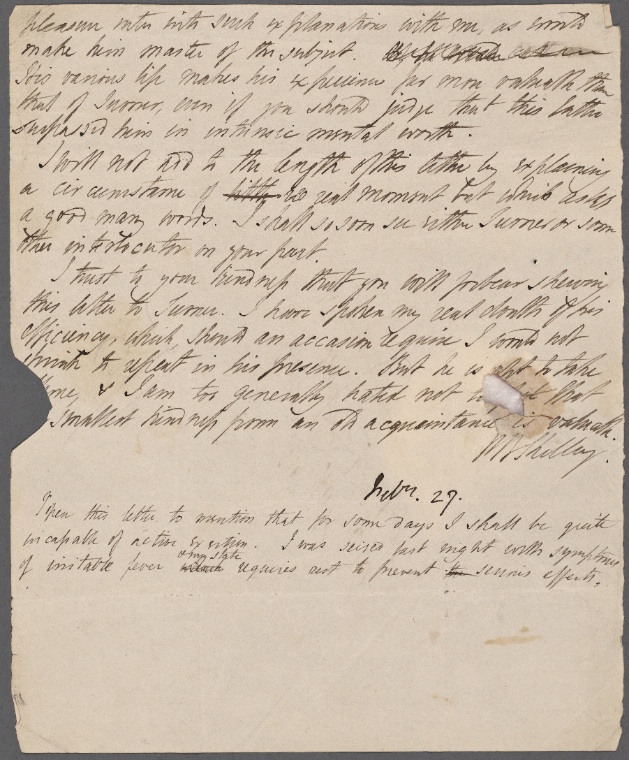 pleasure enter into such explanations with me, as would
make him master of the subject.
His various life makes his experience far more valuable than
that of Turner, even if you should judge that this latter
surpassed him in intrinsic mental worth.
I will not add to the length of this letter by explaining
a circumstance of little no real moment but which asks
a good many words. I shall so soon see either Turner or some
other interlocutor on your part.
I trust to your kindness that you will forbear shewing
this letter to Turner. I have spoken my real doubts of his
efficiency, which, should an occasion require I would not
shrink to repeat in his presence. But he is apt to take
& I am too generally hated not to that
smallest kindness from an old acquaintance is valuable.
PBShelley.
Feby. 27.
I open this letter to mention that for some days I shall be quite
incapable of active exertion. I was seized last night with symptoms
of irritable fever & my state which requires rest to prevent the serious effects.